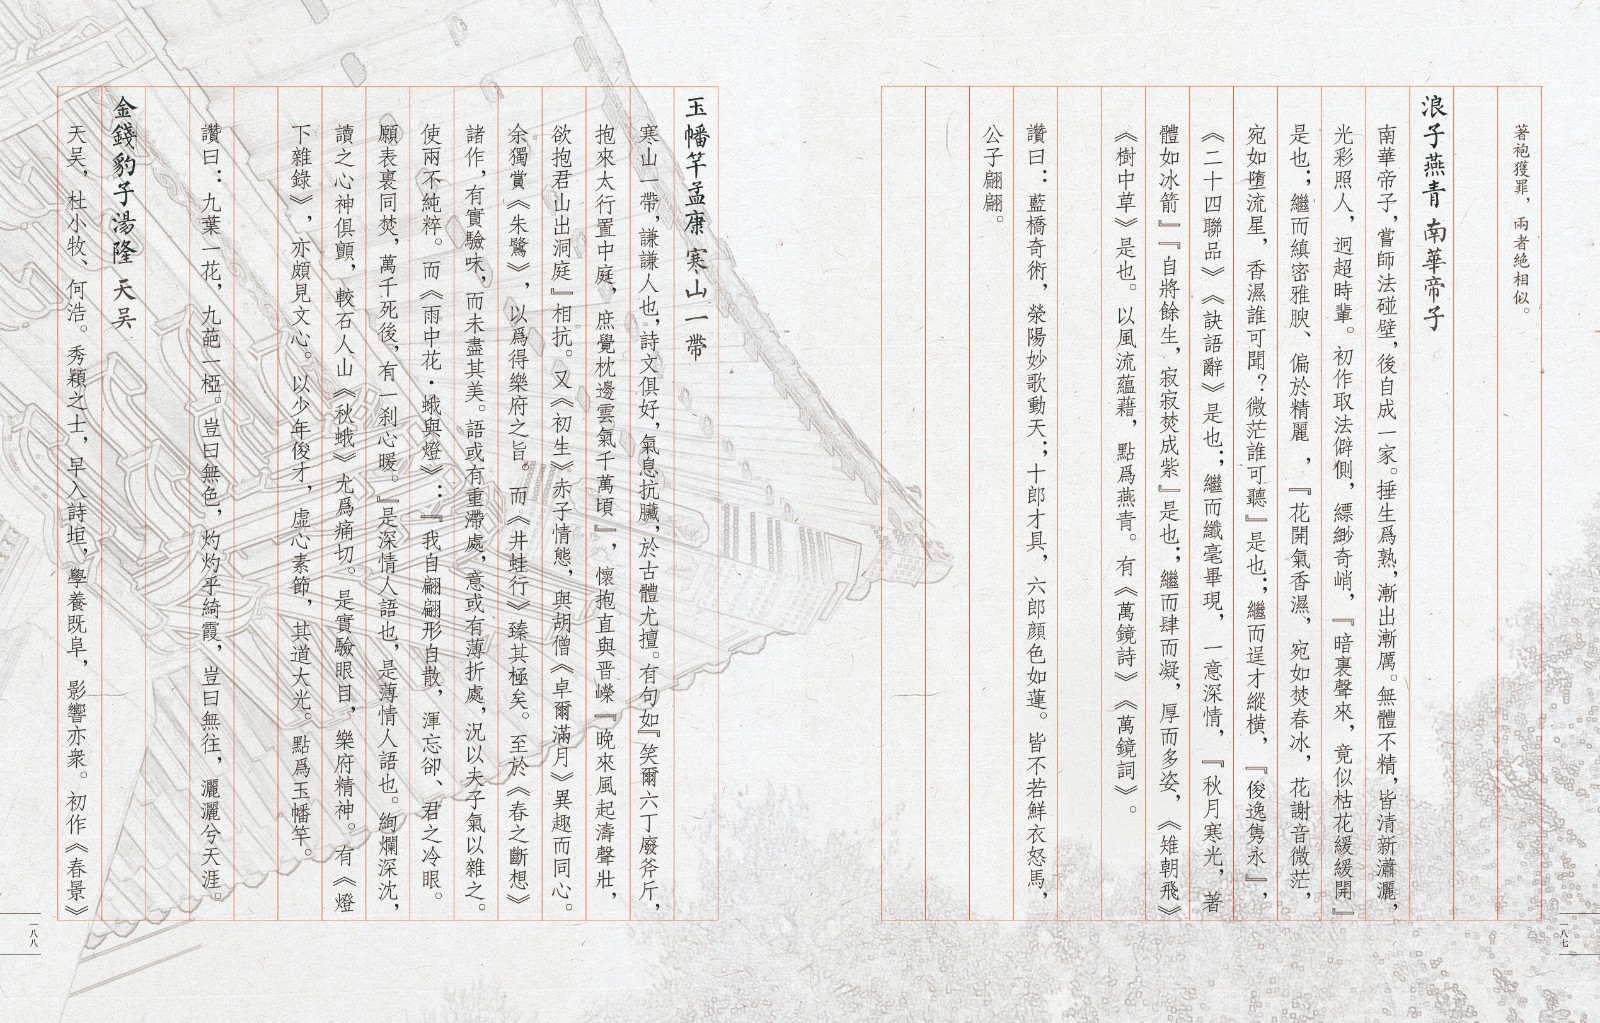 著袍獲罪，兩者絕相似。
浪子燕青 南華帝子
南華帝子，嘗師法碰壁，後自成一家。捶生爲熟，漸出漸厲。無體不精，皆清新瀟灑，
光彩照人，迥超時輩。初作取法僻側，縹緲奇峭，『暗裏聲來，竟似枯花緩緩開』
是也；繼而縝密雅腴、偏於精麗，『花開氣香濕，宛如焚春冰，花謝音微茫，
宛如墮流星，香濕誰可聞？微茫誰可聽』是也；繼而逞才縱橫，『俊逸雋永』，
《二十四聯品》《訣語辭》是也；繼而纖毫畢現，一意深情，『秋月寒光，著
體如冰箭』『自將餘生，寂寂焚成紫』是也；繼而肆而凝，厚而多姿，《雉朝飛》
《樹中草》是也。以風流蘊藉，點爲燕青。有《萬鏡詩》《萬鏡詞》。
讚曰：藍橋奇術，滎陽妙歌動天；十郎才具，六郎顔色如蓮。皆不若鮮衣怒馬，
公子翩翩。
一八七
玉幡竿孟康 寒山一帶
寒山一帶，謙謙人也，詩文俱好，氣息抗臟，於古體尤擅。有句如『笑爾六丁廢斧斤，
抱來太行置中庭，庶覺枕邊雲氣千萬頃』，懷抱直與晋嶸『晚來風起濤聲壯，
欲抱君山出洞庭』相抗。又《初生》赤子情態，與胡僧《卓爾滿月》異趣而同心。
余獨賞《朱鷺》，以爲得樂府之旨。而《井蛙行》臻其極矣。至於《春之斷想》
諸作，有實驗味，而未盡其美。語或有重滯處，意或有薄折處，況以夫子氣以雜之。
使兩不純粹。而《雨中花·蛾與燈》：『我自翩翩形自散，渾忘卻、君之冷眼。
願表裏同焚，萬千死後，有一刹心暖。』是深情人語也，是薄情人語也。絢爛深沈，
讀之心神俱顫，較石人山《秋蛾》尤爲痛切。是實驗眼目，樂府精神。有《燈
下雜錄》，亦頗見文心。以少年俊才，虛心素節，其道大光。點爲玉幡竿。
讚曰：九葉一花，九葩一椏。豈曰無色，灼灼乎綺霞，豈曰無往，灑灑兮天涯。
金錢豹子湯隆 天吴
天吴，杜小牧、何浩。秀穎之士，早入詩垣，學養既阜，影響亦衆。初作《春景》
一八八